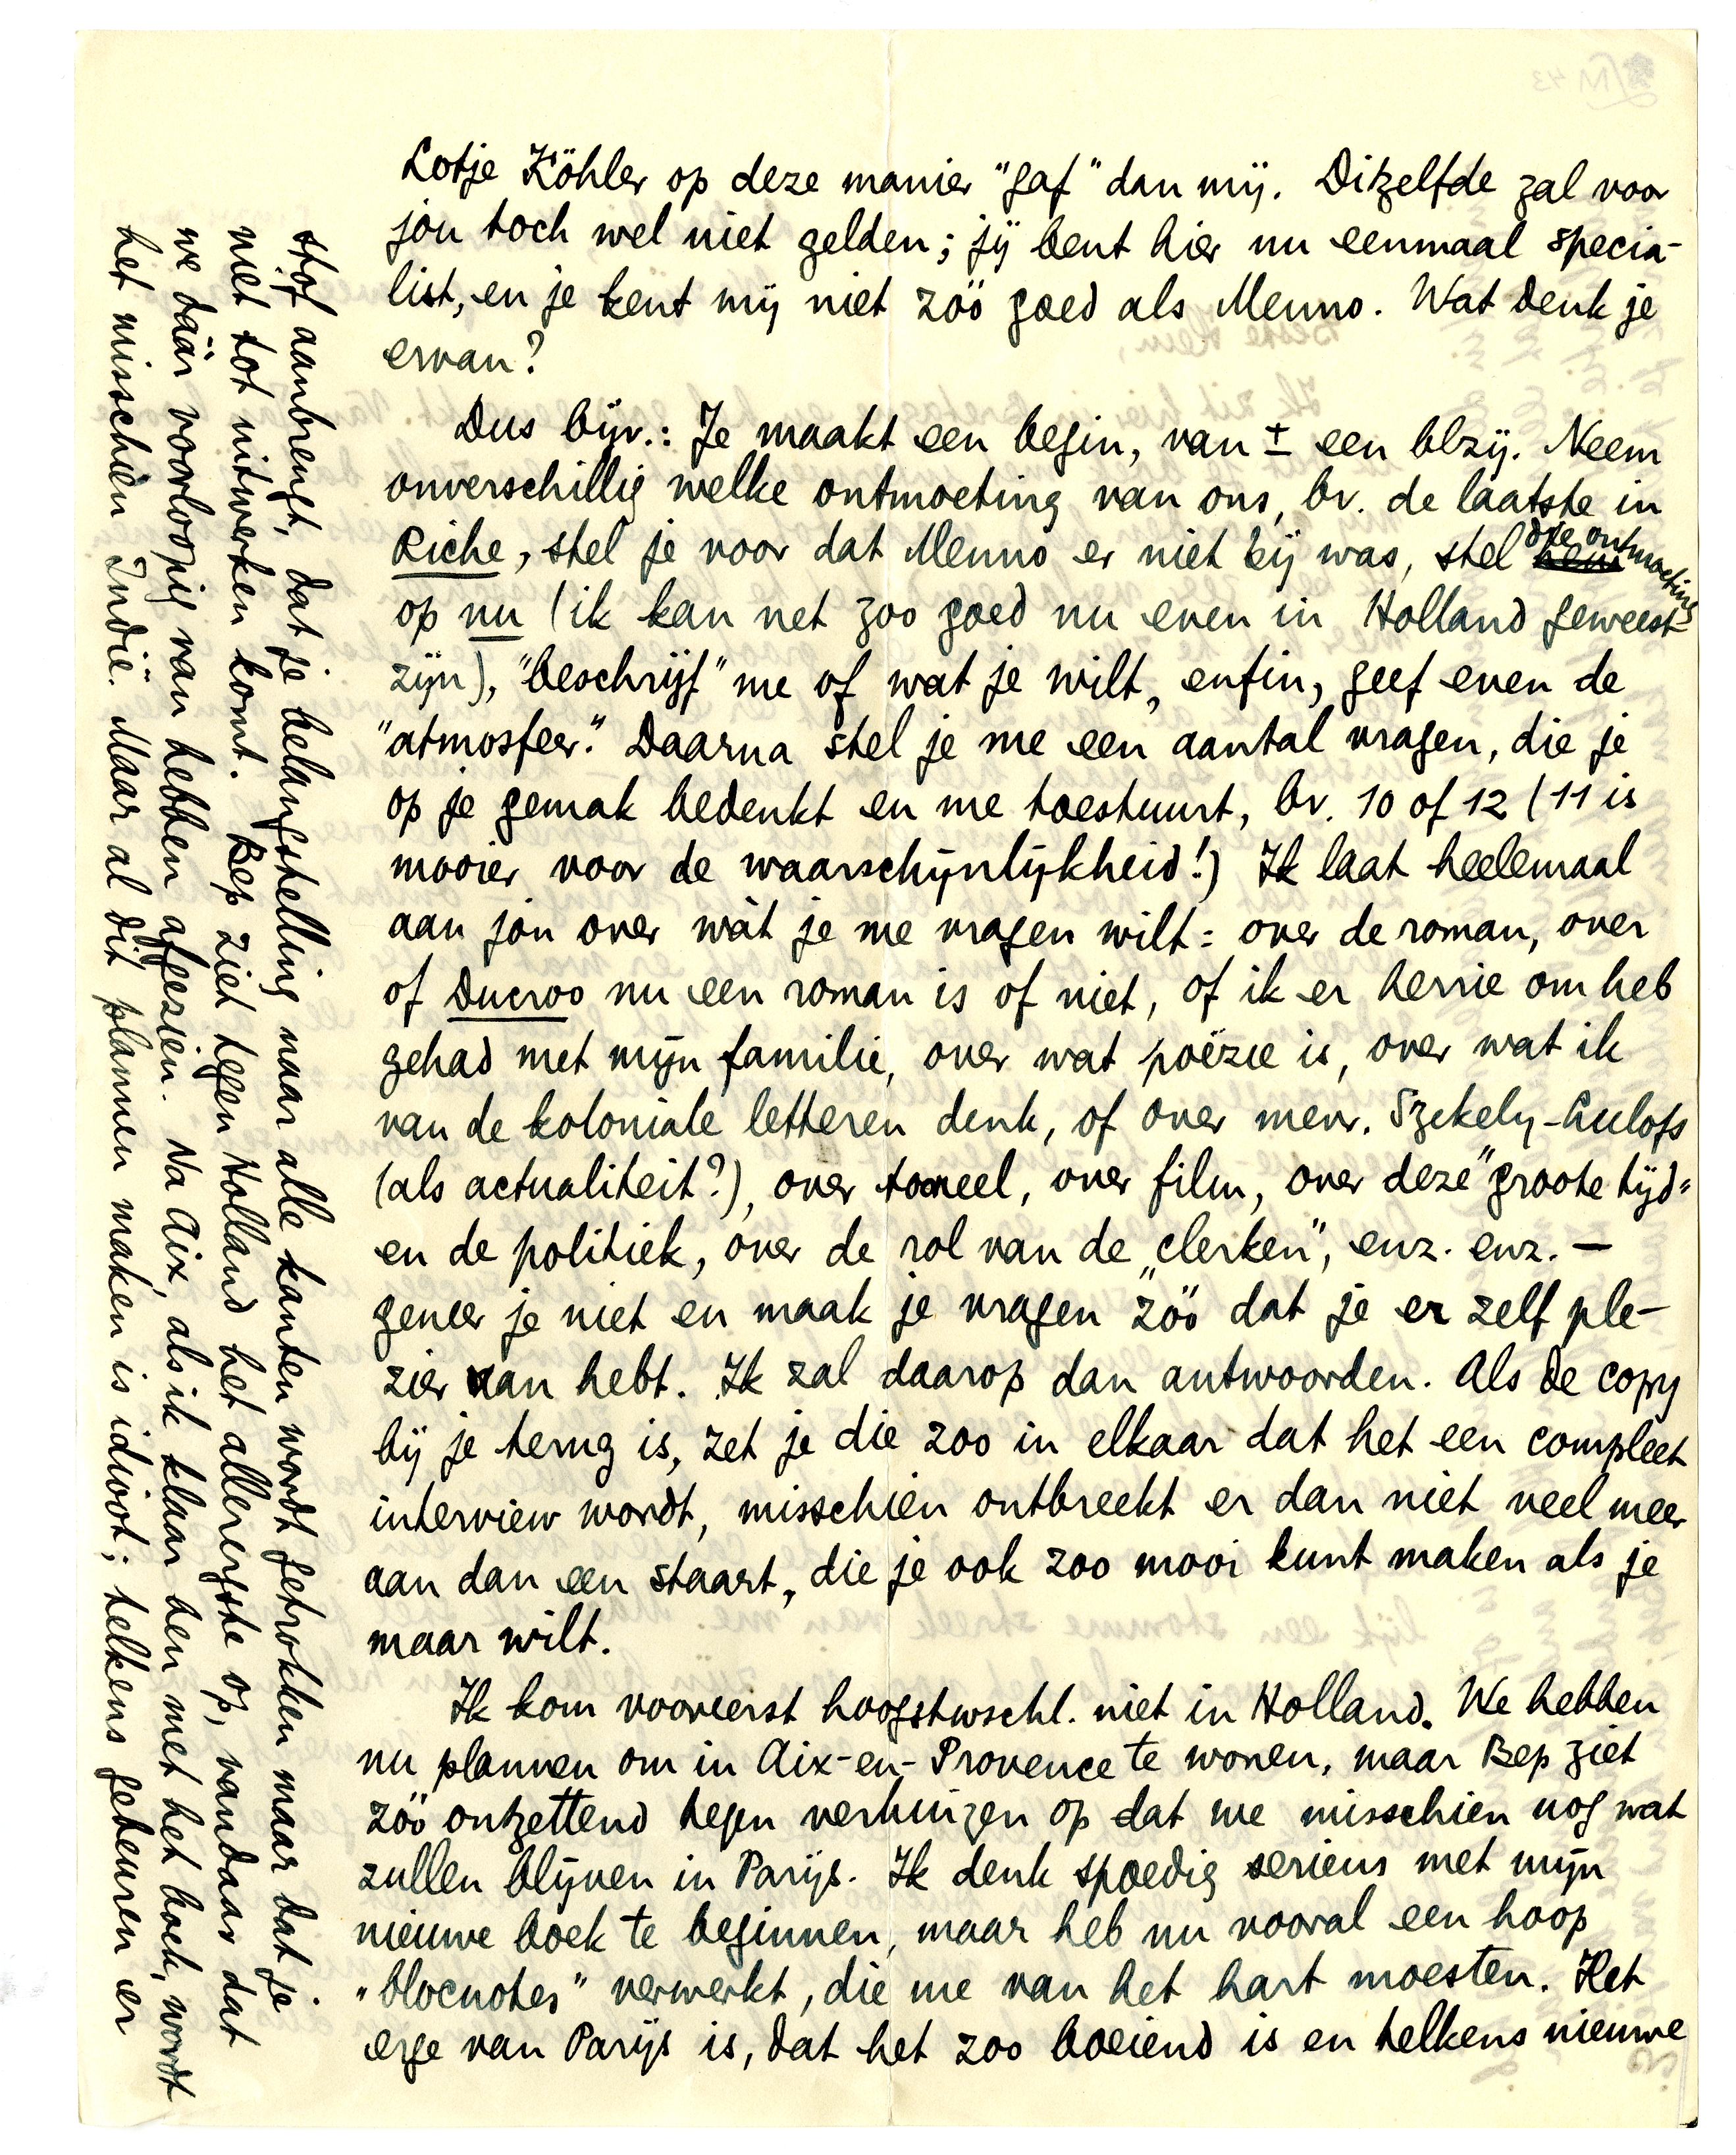 Lotje Köhler op deze manier "gaf" dan mij. Ditzelfde zal voor
jou toch wel niet gelden; jij bent hier nu eenmaal specia-
list, en je kent mij niet zóó goed als Menno. Wat denk je
ervan?
Dus bijv.: Je maakt een begin, van ± een blzij. Neem
onverschillig welke ontmoeting van ons, bv. de laatste in
Riche, stel je voor dat Menno er niet bij was, stel die ontmoeting
op nu (ik kan net zoo goed nu even in Holland geweest
zijn), "beschrijf" me of wat je wilt, enfin, geef even de
"atmosfeer". Daarna stel je me een aantal vragen, die je
op je gemak bedenkt en me toestuurt, bv. 10 of 12 (11 is
mooier voor de waarschijnlijkheid!) Ik laat heelemaal
aan jou over wàt je me vragen wilt: over de roman, over
of Ducroo nu een roman is of niet, of ik er herrie om heb
gehad met mijn familie, over wat poëzie is, over wat ik
van de koloniale letteren denk, of over mevr. Szekely-Lulofs
(als actualiteit?), over tooneel, over film, over deze "groote tijd"
en de politiek, over de rol van de „clerken", enz. enz. —
geneer je niet en maak je vragen zóó dat je er zelf ple-
zier van hebt. Ik zal daarop dan antwoorden. Als de copy
bij je terug is, zet je die zoo in elkaar dat het een compleet
interview wordt, misschien ontbreekt er dan niet veel meer
aan dan een staart, die je ook zoo mooi kunt maken als je
maar wilt.
Ik kom vooreerst hoogstwschl. niet in Holland. We hebben
nu plannen om in Aix-en-Provence te wonen, maar Bep ziet
zóó ontzettend tegen verhuizen op dat we misschien nog wat
zullen blijven in Parijs. Ik denk spoedig serieus met mijn
nieuwe boek te beginnen, maar heb nu vooral een hoop
"blocnotes" verwerkt, die me van het hart moesten. Het
erge van Parijs is, dat het zoo boeiend is en telkens nieuwe
stof aanbrengt, dat je belangstelling naar alle kanten wordt getrokken maar dat je
niet tot uitwerken komt. Bep ziet tegen Holland het allerergste op, vandaar dat
we dáár voorloopig van hebben afgezien. Na Aix, als ik klaar ben met het boek, wordt
het misschien Indië. Maar al dit plannen maken is idioot; telkens gebeuren er